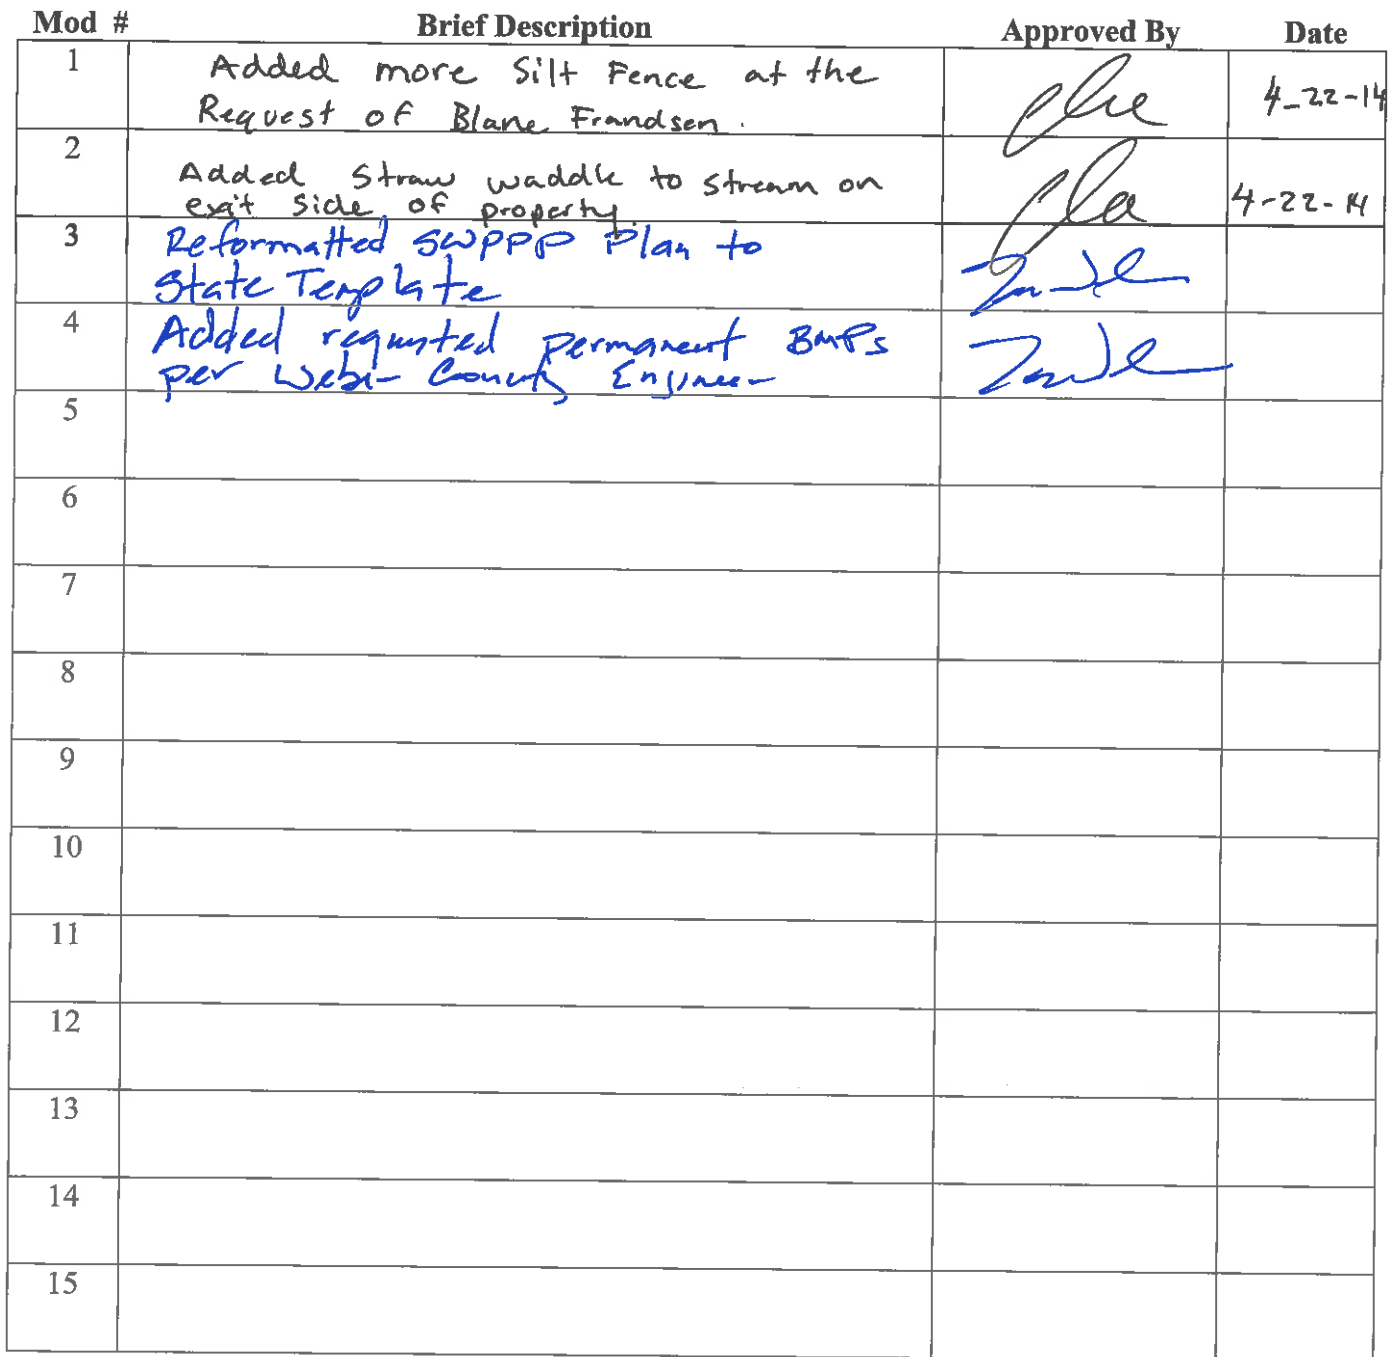 Mod # Brief Description Approved By Date
1 Added more Silt Fence at the
Request of Blane Frandsen. 4-22-14
2 Added Straw waddle to stream on
exit side of property. 4-22-14
3 Reformatted SWPPP Plan to
State Template
4 Added requested permanent BMPs
per Weber County Engineer
5
6
7
8
9
10
11
12
13
14
15